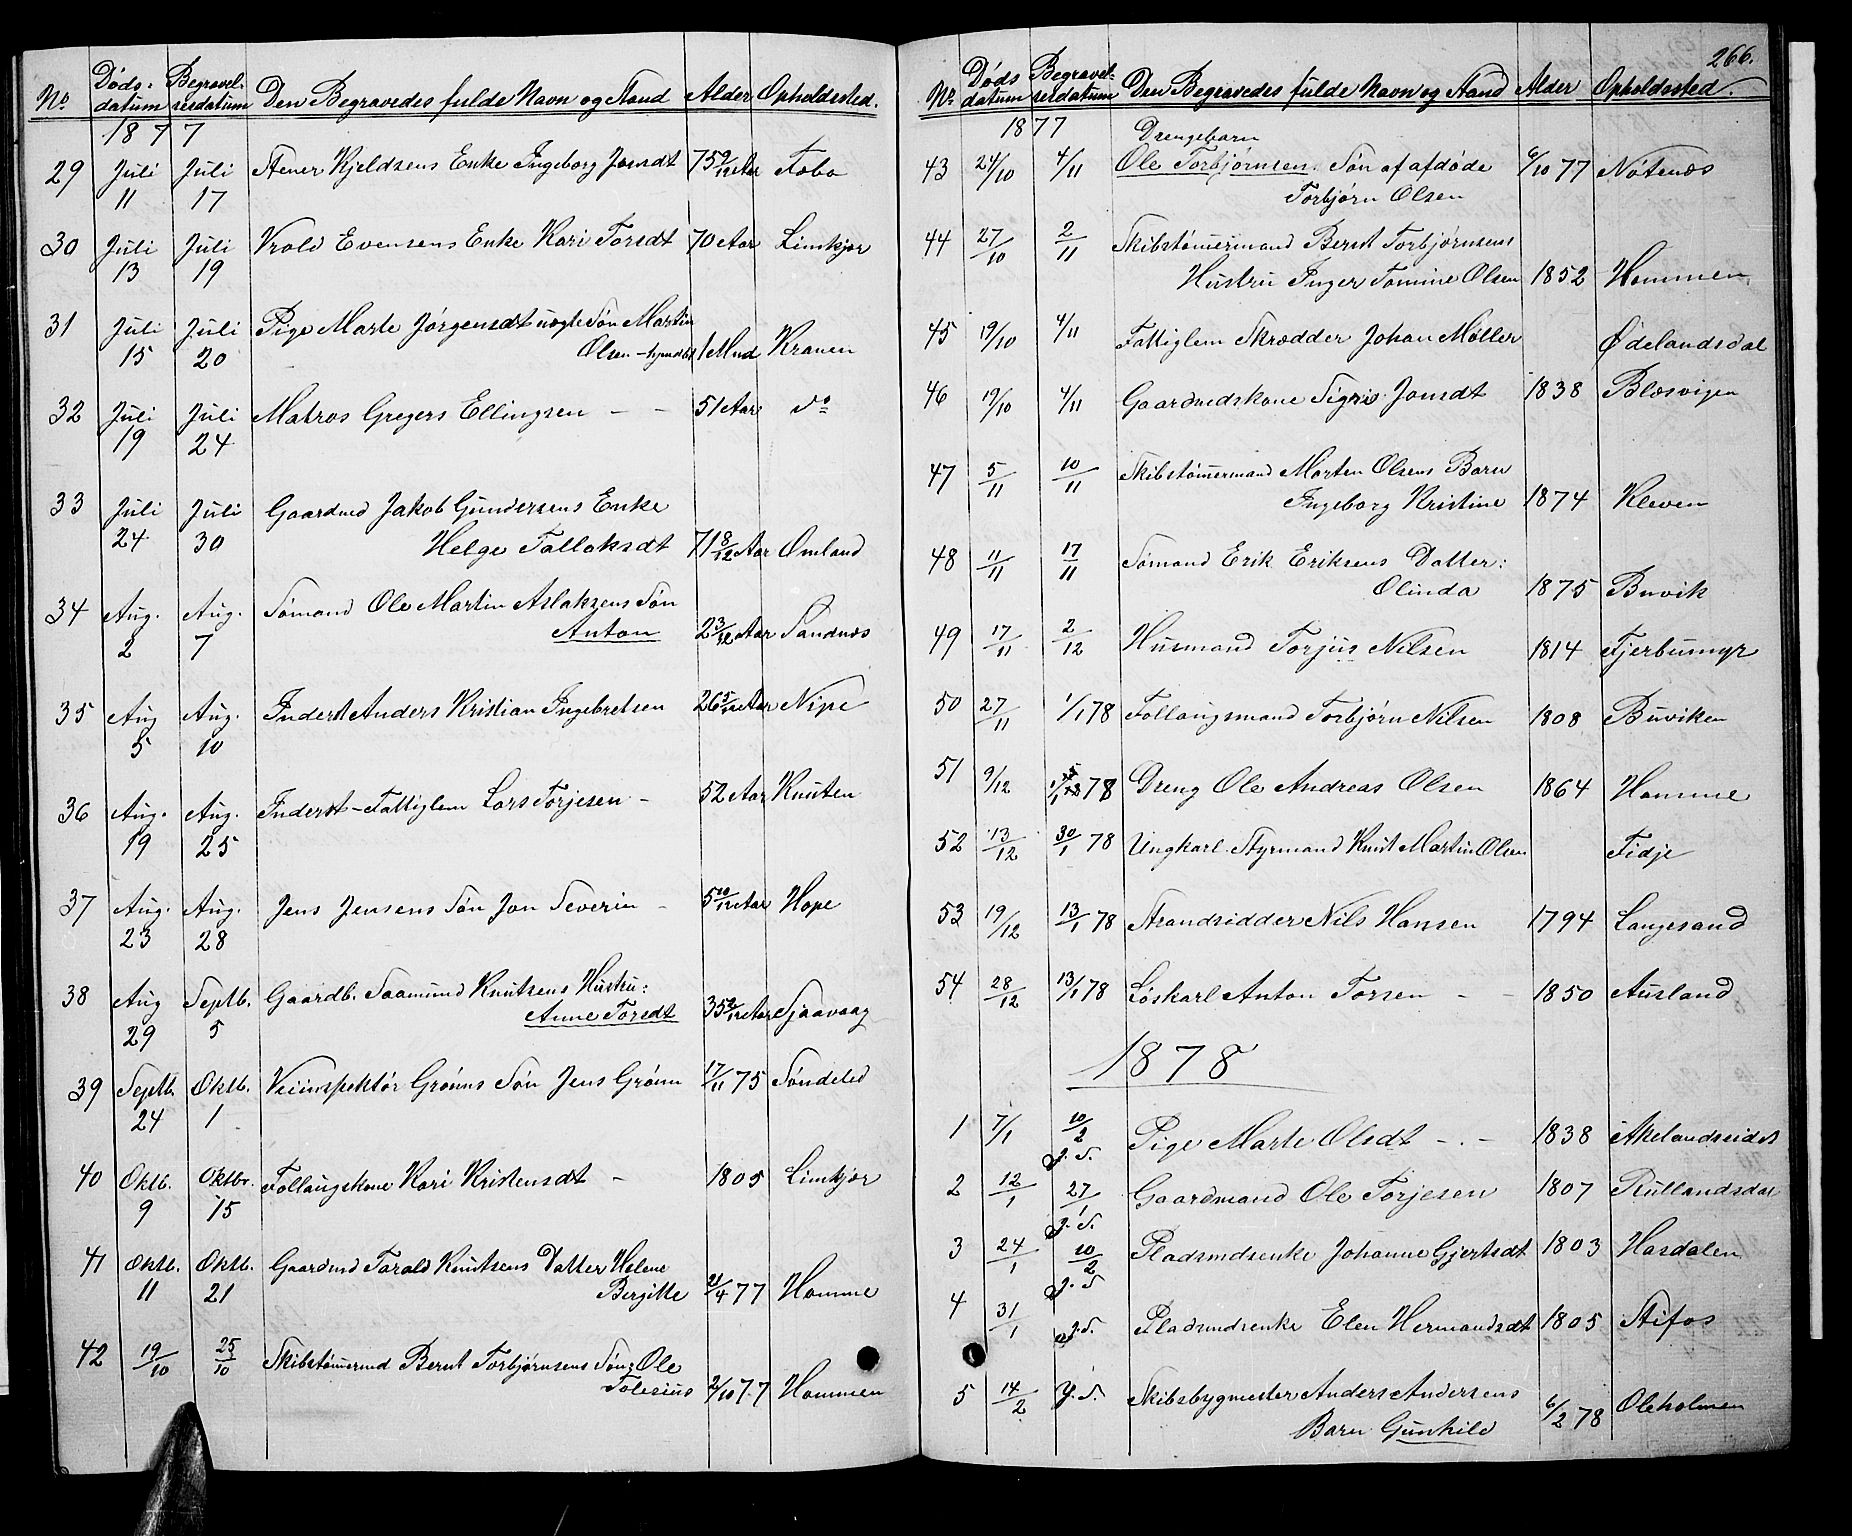 No. Dødsdatum Begravelsesdatum Den Begravedes fulde Navn og Stand Alder Opholdssted.
1877
29 Juli 11 Juli 17 Stener Kjeldsens Enke Ingeborg Jonsdt 75 9/12 Aar Fobo
30 Juli 13 Juli 19 Vrold Evensens Enke Kari Torsdt 70 Aar Limkjær
31 Juli 15 Juli 20 Pige Marte Jørgensdt uægte Søn Martin
Olsen - hjmdbt 1 Mnd Kranen
32 Juli 19 Juli 24 Matros Gregers Ellingsen - - 51 Aar do
33 Juli 24 Juli 30 Gaardmd Jakob Gundersens Enke
Helge Tallaksdt 71 8/12 Aar Omland
34 Aug. 2 Aug. 7 Sømand Ole Martin Aslaksens Søn
Anton 2 3/12 Aar Sandnæs
35 Aug 5 Aug. 10 Inderst Anders Kristian Ingebretsen 26 5/12 Aar Nipe
36 Aug. 19 Aug. 25 Inderst - Fattiglem Lars Torjesen - 52 Aar Knuten
37 Aug. 23 Aug. 28 Jens Jensens Søn Jon Severin - 5 10/12 Aar Hope
38 Aug 29 Septb. 5 Gaardb. Saamund Knutsens Hustru:
Anne Torsdt 35 Aar Sjaavaag
39 Septb. 24 Oktb. 1 Veiinspektør Grønns Søn Jens Grønn 17/11 75 Søndeled
40 Oktb. 9 Oktbr. 15 Follaugskone Kari Kristensdt - 1805 Limkjær
41 Oktb. 11 Oktb. 21 Gaardmd Tarald Knutsens Datter Helene
Bergitte 21/4 77 Homme
42 19/10 25/10 Skibstømermd Bernt Torbjørnsens Søn: Ole
Tolesius 2/10 77 Hommen
266.
No. Dødsdatum Begravelsesdatum Den Begravedes fulde Navn og Stand Alder Opholdssted.
1877 Drengebarn
43 24/10 4/11 Ole Torbjørnsen. Søn af afdøde 6/10 77 Nøtenæs
Torbjørn Olsen
44 27/10 2/11 Skibstømermand Bernt Torbjørnsens
Hustru Inger Tomine Olsen 1852 Hommen
45 19/10 4/11 Fattiglem Skrædder Johan Møller Ødelandsdal
46 19/10 4/11 Gaardmdskone Sigri Jonsdt 1838 Blæsvigen
47 5/11 10/11 Skibstømermand Morten Olsens Barn
Ingeborg Kristine 1874 Kleven
48 11/11 17/11 Sømand Erik Eriksens Datter:
Olinda 1875 Buvik
49 17/11 2/12 Husmand Torjus Nilsen 1814 Fjerbumyr
50 27/11 1/1 78 Follaugsmand Torbjørn Nilsen 1808 Buviken
51 9/12 78 Dreng Ole Andreas Olsen 1864 Homme
52 13/12 30/1 78 Ungkarl Styrmand Knut Martin Olsen Fidje
53 19/12 13/1 78 Strandsidder Nils Hansen 1794 Langesand
54 28/12 13/1 78 Løskarl Anton Torsen - - 1850 Ausland
1878
1 7/1 10/2 Pige Marte Olsdt - . - 1838 Akelandseidet
2 12/1 J. S. 27/1 Gaardmand Ole Torjesen 1807 Rullandsdal
3 24/1 J. S. 10/2 Pladsmdsenke Johanne Gjertsdt 1803 Hasdalen
4 31/1 J. S. J. S. Pladsmdsenke Elen Hermandsdt 1805 Stifos
5 14/2 J. S. Skibsbygmester Anders Andersens
Barn Gunhild 6/2 78 Oleholmen